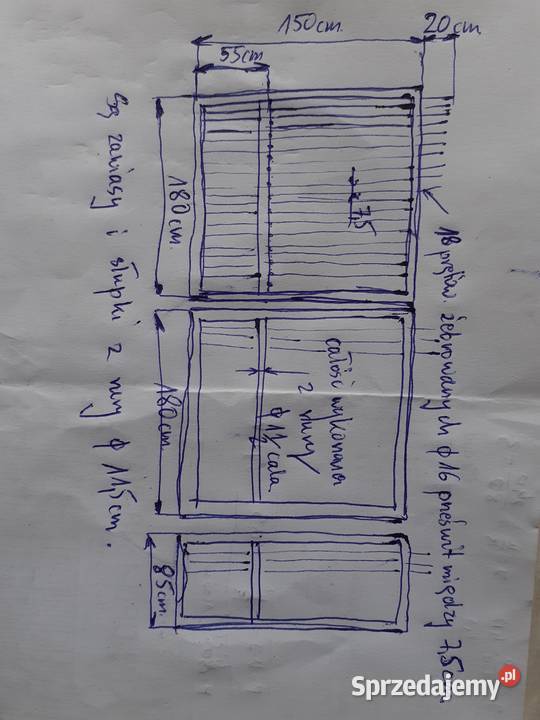 150cm.
20cm
55cm
180cm.
7,5
18 prętów żebrowanych φ16 prześwit między 7,5cm
180cm.
całość wykonana
z rury
φ 1½ cala
85cm.
Są zawiasy i słupki z rury φ 11,5cm.
Sprzedajemy.pl